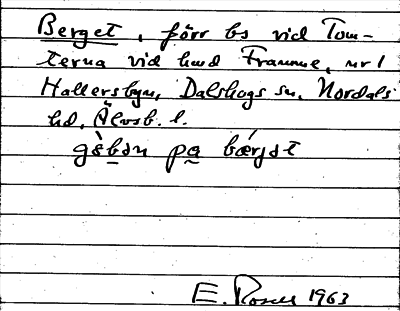 Berget, förr bs vid Tom-
terna vid hmd Framme, nr 1
Hallersbyn, Dalskogs sn, Nordals
hd, Älvsb. l.
gɵ̀bən pa bǽrjət
E. Rosell 1963